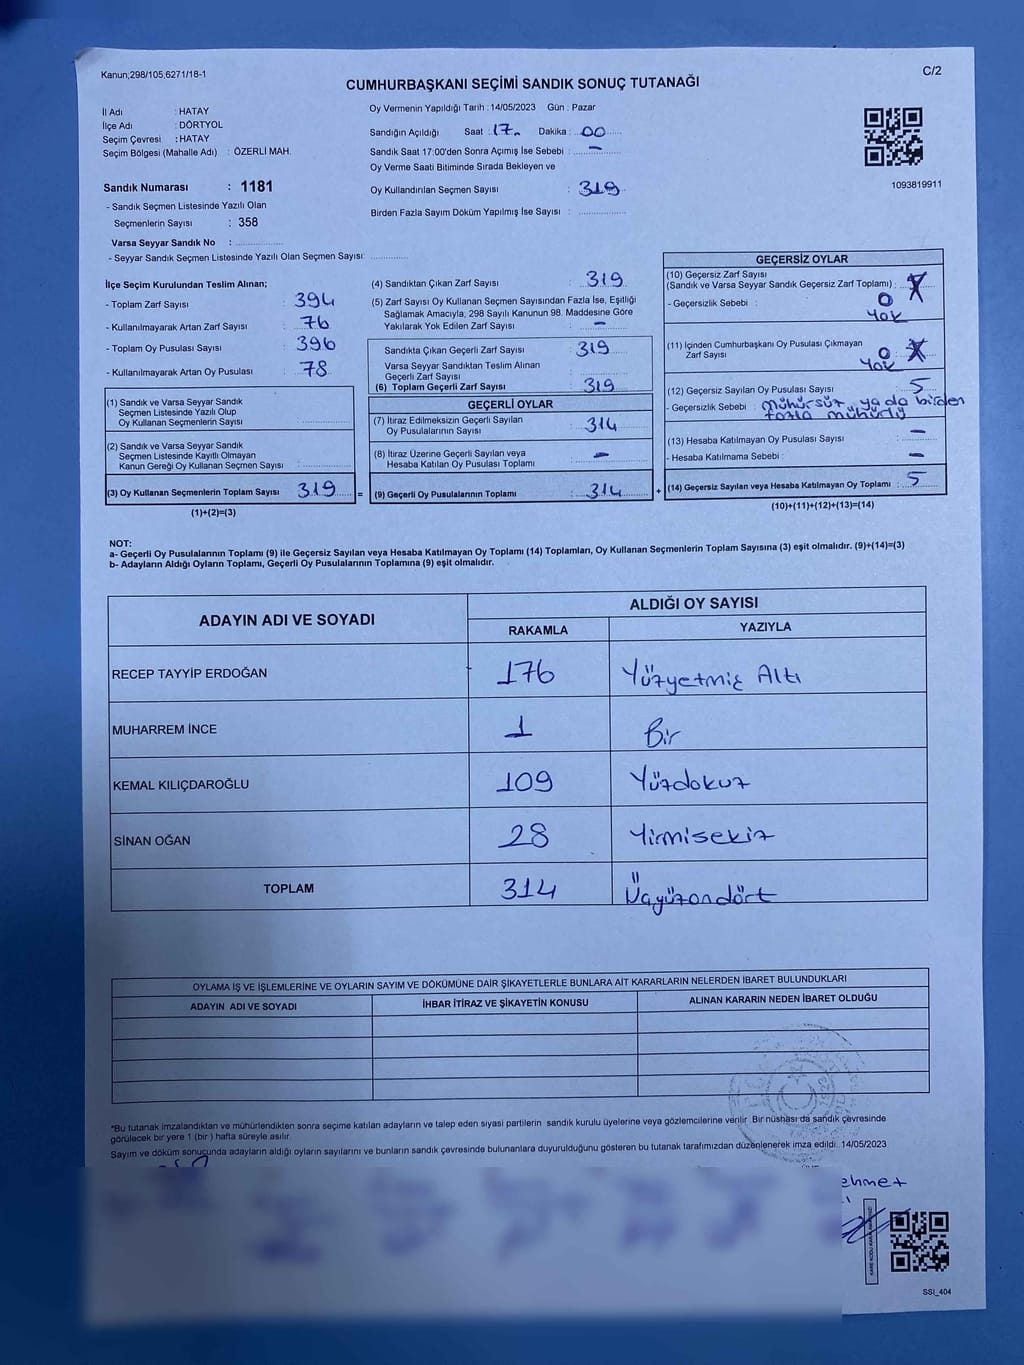 Kanun;298/105,6271/18-1
C/2
CUMHURBAŞKANI SEÇİMİ SANDIK SONUÇ TUTANAĞI
İl Adı : HATAY
İlçe Adı : DÖRTYOL
Seçim Çevresi : HATAY
Seçim Bölgesi (Mahalle Adı) : ÖZERLİ MAH.
Sandık Numarası : 1181
- Sandık Seçmen Listesinde Yazılı Olan
Seçmenlerin Sayısı : 358
Varsa Seyyar Sandık No :
- Seyyar Sandık Seçmen Listesinde Yazılı Olan Seçmen Sayısı:
Oy Vermenin Yapıldığı Tarih : 14/05/2023 Gün : Pazar
Sandığın Açıldığı Saat : 17 Dakika : 00
Sandık Saat 17:00'den Sonra Açımış İse Sebebi : -
Oy Verme Saati Bitiminde Sırada Bekleyen ve
Oy Kullandırılan Seçmen Sayısı : 319
Birden Fazla Sayım Döküm Yapılmış İse Sayısı :
1093819911
İlçe Seçim Kurulundan Teslim Alınan;
- Toplam Zarf Sayısı : 394
- Kullanılmayarak Artan Zarf Sayısı : 76
- Toplam Oy Pusulası Sayısı : 396
- Kullanılmayarak Artan Oy Pusulası : 78
(1) Sandık ve Varsa Seyyar Sandık
Seçmen Listesinde Yazılı Olup
Oy Kullanan Seçmenlerin Sayısı :
(2) Sandık ve Varsa Seyyar Sandık
Seçmen Listesinde Kayıtlı Olmayan
Kanun Gereği Oy Kullanan Seçmen Sayısı :
(3) Oy Kullanan Seçmenlerin Toplam Sayısı 319 =
(1)+(2)=(3)
(4) Sandıktan Çıkan Zarf Sayısı : 319
(5) Zarf Sayısı Oy Kullanan Seçmen Sayısından Fazla İse, Eşitliği
Sağlamak Amacıyla, 298 Sayılı Kanunun 98. Maddesine Göre
Yakılarak Yok Edilen Zarf Sayısı : -
Sandıkta Çıkan Geçerli Zarf Sayısı : 319
Varsa Seyyar Sandıktan Teslim Alınan
Geçerli Zarf Sayısı :
(6) Toplam Geçerli Zarf Sayısı : 319
GEÇERLİ OYLAR
(7) İtiraz Edilmeksizin Geçerli Sayılan
Oy Pusulalarının Sayısı : 314
(8) İtiraz Üzerine Geçerli Sayılan veya
Hesaba Katılan Oy Pusulası Toplamı : -
(9) Geçerli Oy Pusulalarının Toplamı : 314 +
GEÇERSİZ OYLAR
(10) Geçersiz Zarf Sayısı
(Sandık ve Varsa Seyyar Sandık Geçersiz Zarf Toplamı) :
- Geçersizlik Sebebi : 0
Yok
(11) İçinden Cumhurbaşkanı Oy Pusulası Çıkmayan
Zarf Sayısı : 0
Yok
(12) Geçersiz Sayılan Oy Pusulası Sayısı : 5
- Geçersizlik Sebebi : mühürsüz, ya da birden
fazla mühürlü
(13) Hesaba Katılmayan Oy Pusulası Sayısı : -
- Hesaba Katılmama Sebebi : -
(14) Geçersiz Sayılan veya Hesaba Katılmayan Oy Toplamı : 5
(10)+(11)+(12)+(13)=(14)
NOT:
a- Geçerli Oy Pusulalarının Toplamı (9) ile Geçersiz Sayılan veya Hesaba Katılmayan Oy Toplamı (14) Toplamları, Oy Kullanan Seçmenlerin Toplam Sayısına (3) eşit olmalıdır. (9)+(14)=(3)
b- Adayların Aldığı Oyların Toplamı, Geçerli Oy Pusulalarının Toplamına (9) eşit olmalıdır.
ADAYIN ADI VE SOYADI
ALDIĞI OY SAYISI
RAKAMLA YAZIYLA
RECEP TAYYİP ERDOĞAN 176 Yüzyetmiş Altı
MUHARREM İNCE 1 Bir
KEMAL KILIÇDAROĞLU 109 Yüzdokuz
SİNAN OĞAN 28 Yirmisekiz
TOPLAM 314 Üçyüzondört
OYLAMA İŞ VE İŞLEMLERİNE VE OYLARIN SAYIM VE DÖKÜMÜNE DAİR ŞİKAYETLERLE BUNLARA AİT KARARLARIN NELERDEN İBARET BULUNDUKLARI
ADAYIN ADI VE SOYADI İHBAR İTİRAZ VE ŞİKAYETİN KONUSU ALINAN KARARIN NEDEN İBARET OLDUĞU
*Bu tutanak imzalandıktan ve mühürlendikten sonra seçime katılan adayların ve talep eden siyasi partilerin sandık kurulu üyelerine veya gözlemcilerine verilir. Bir nüshası da sandık çevresinde
görülecek bir yere 1 (bir) hafta süreyle asılır.
Sayım ve döküm sonucunda adayların aldığı oyların sayılarını ve bunların sandık çevresinde bulunanlara duyurulduğunu gösteren bu tutanak tarafımızdan düzenlenerek imza edildi. 14/05/2023
ehmet
SSI_404